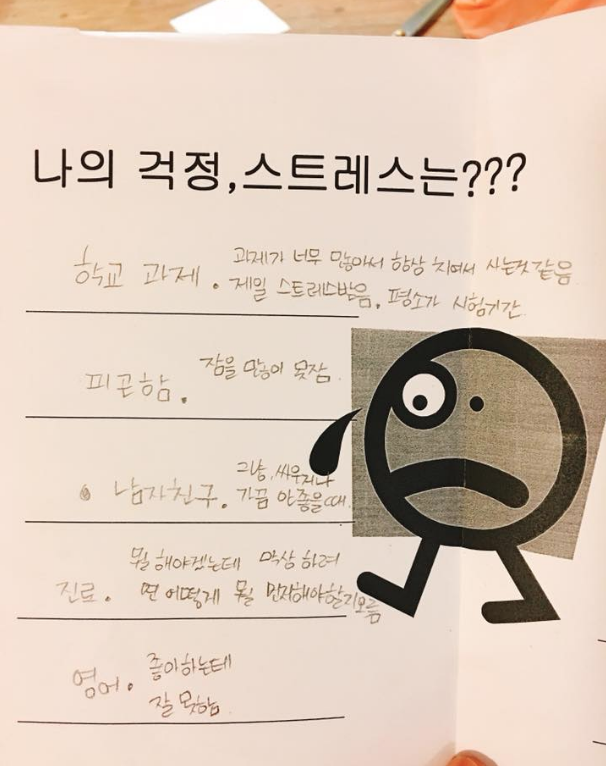 나의 걱정,스트레스는???
학교 과제. 과제가 너무 많아서 항상 치여서 사는것 같음
제일 스트레스받음. 평소가 시험기간.
피곤함. 잠을 많이 못잠.
남자친구. 그냥, 싸우거나
가끔 안좋을때.
뭘 해야겠는데 막상 하려
진료. 면 어떻게 뭘 먼저해야할지모름
영어. 좋아하는데
잘 못함.